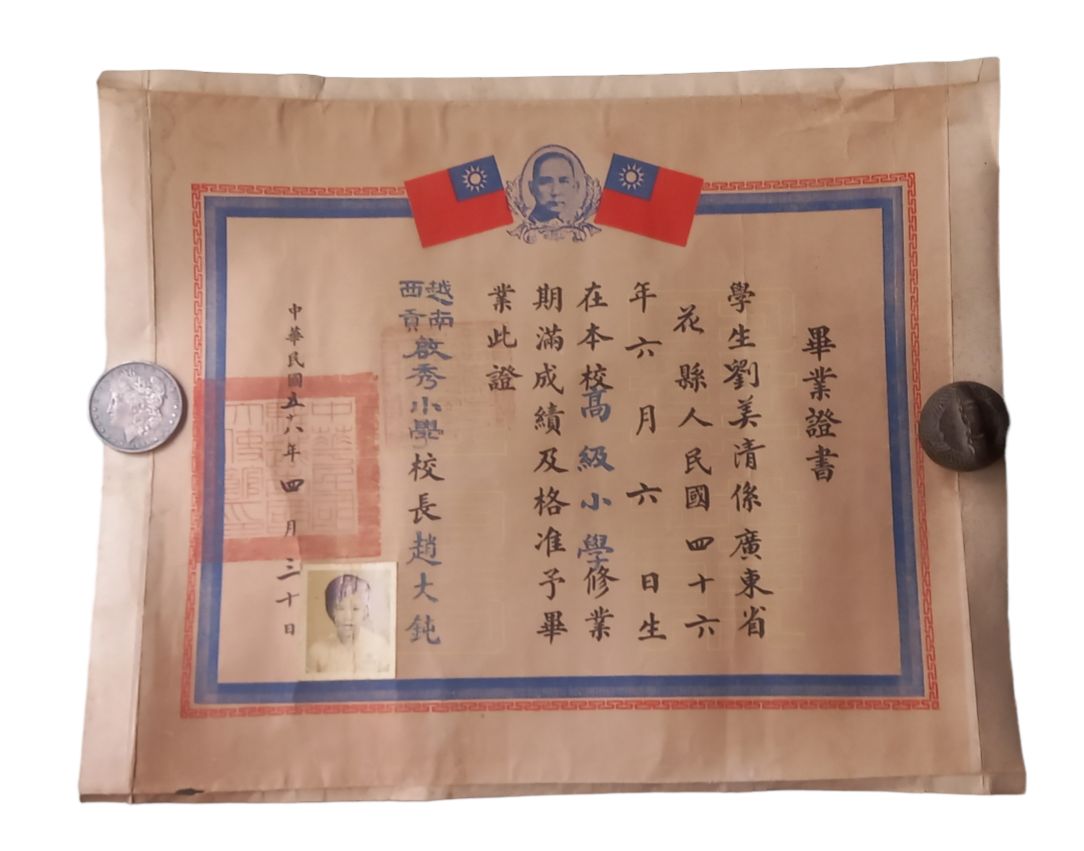 畢業證書
學生劉美清係廣東省
花縣人民國四十六
年六月六日生
在本校高級小學修業
期滿成績及格准予畢
業此證
越南西貢啟秀小學校長趙大鈍
中華民國五十八年四月三十日